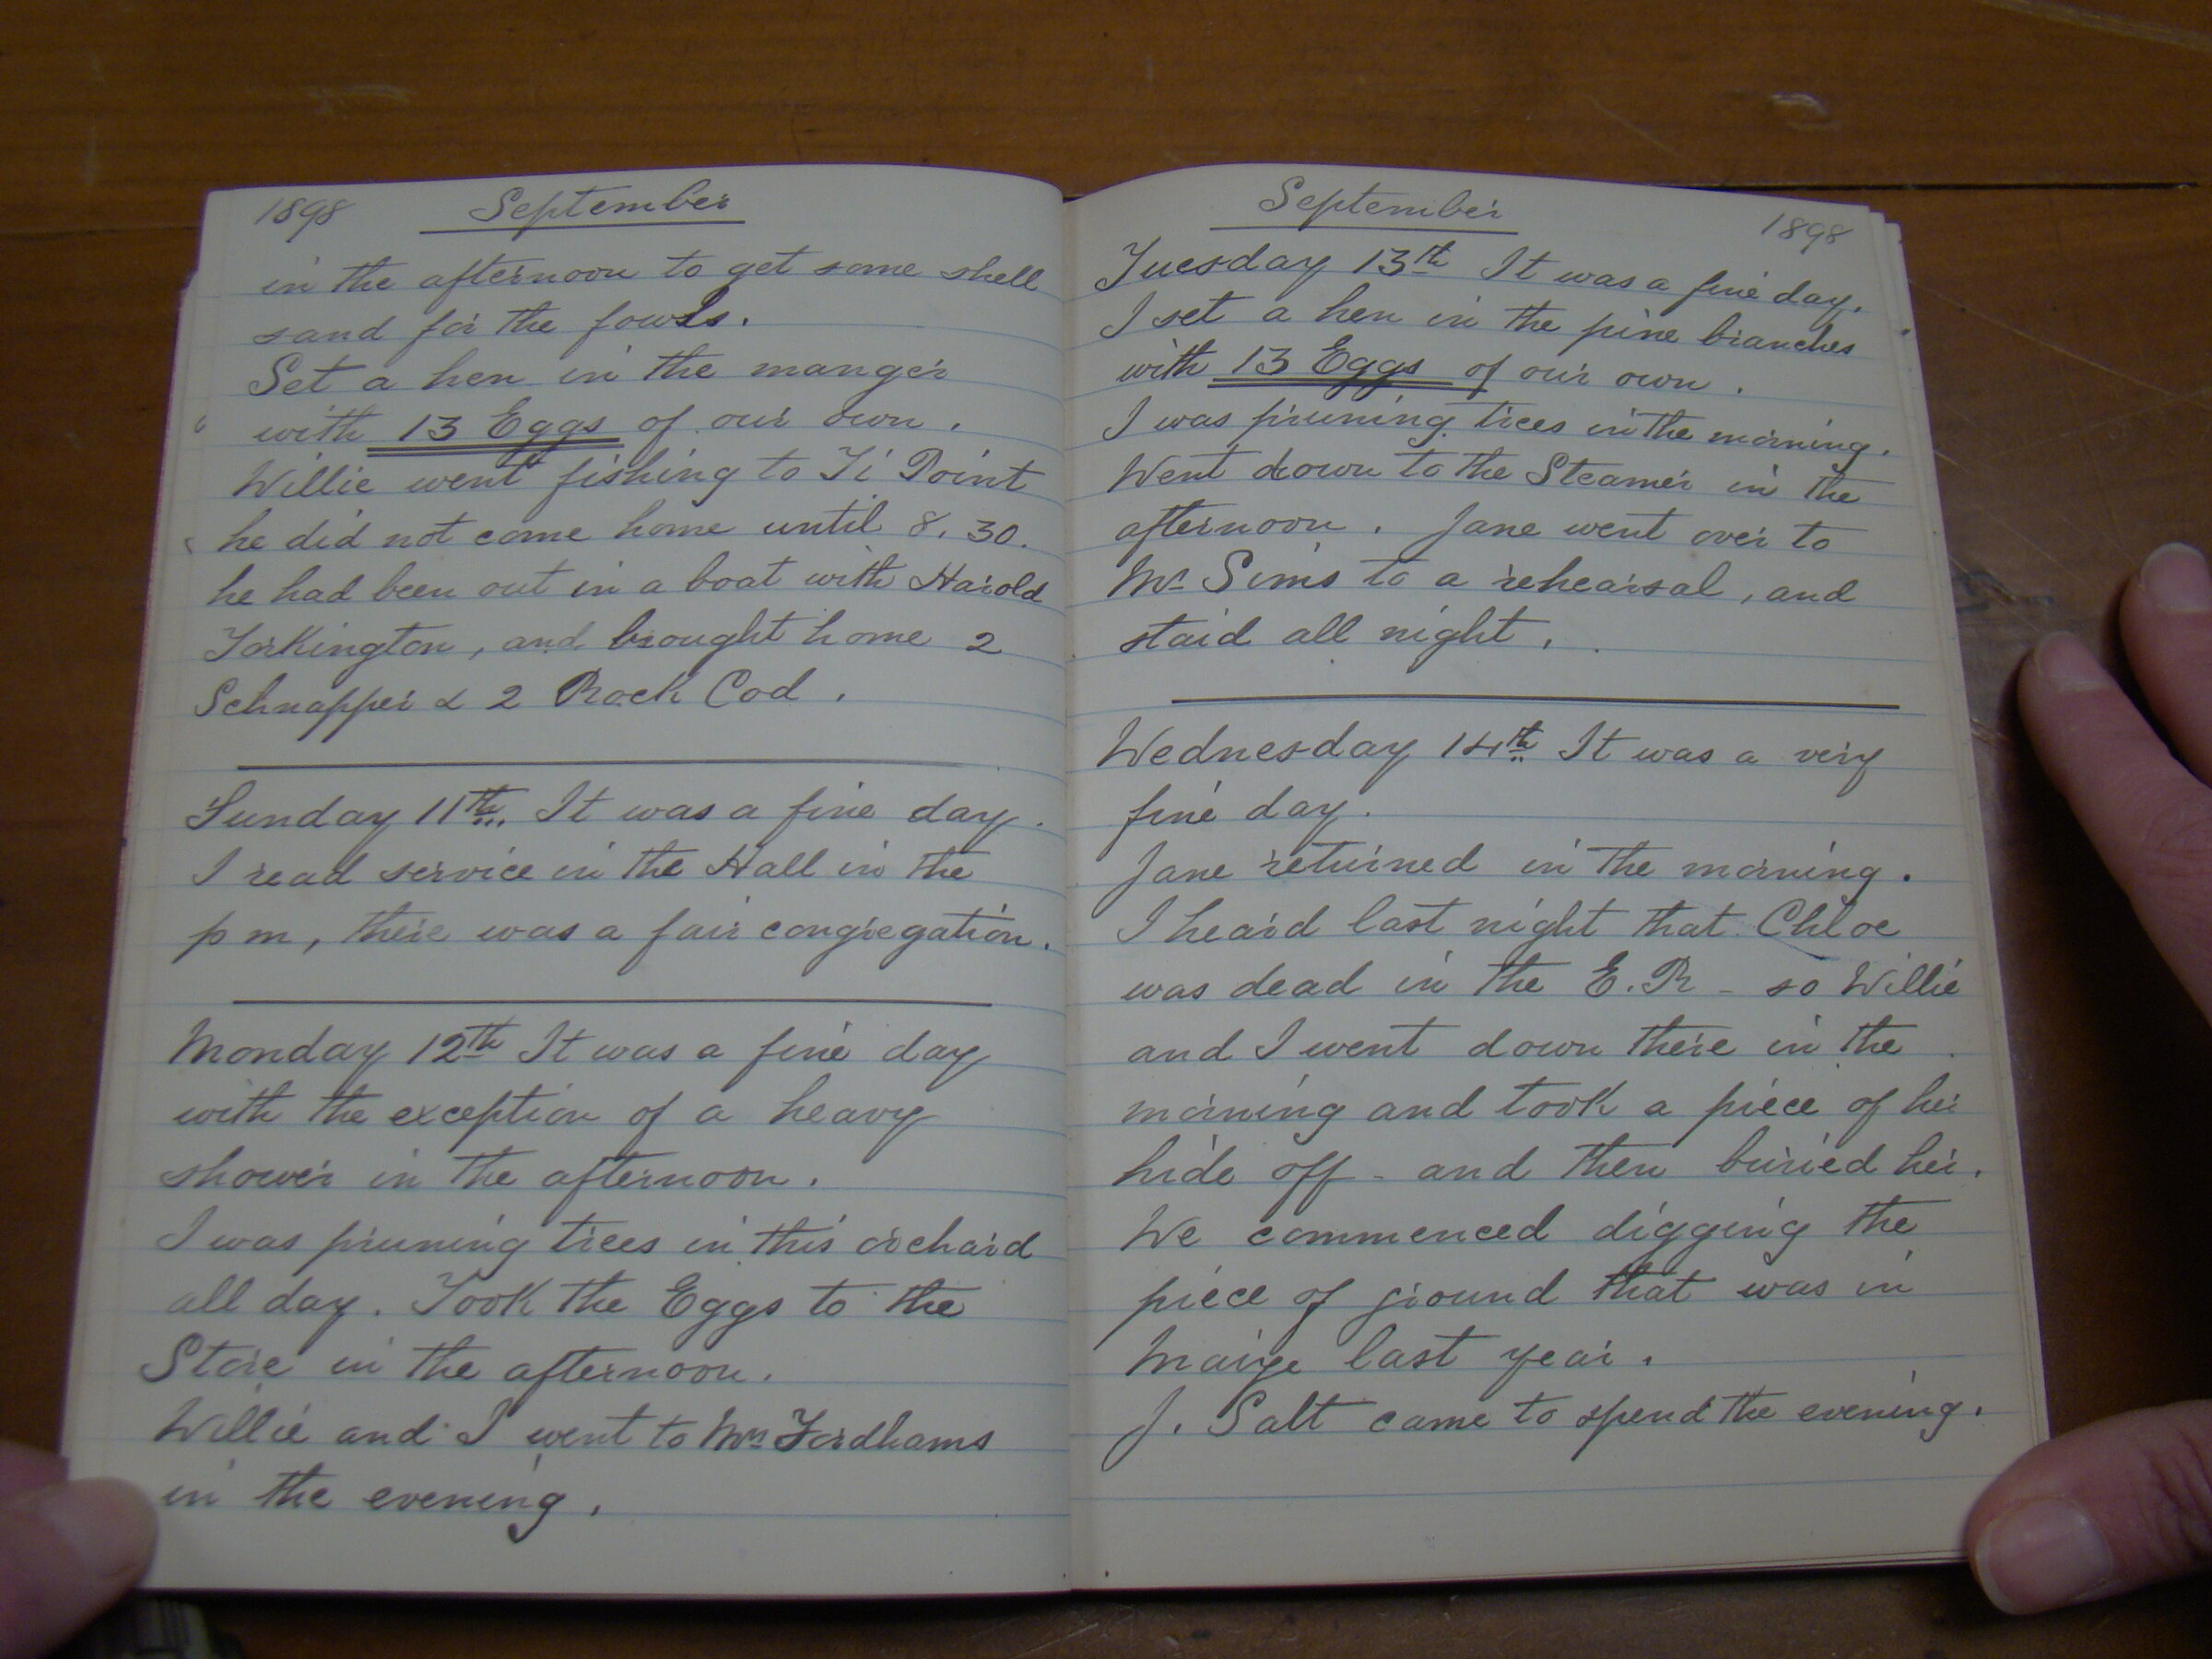 1898 September
in the afternoon to get some shell
sand for the fowls.
Set a hen in the manger
with 13 Eggs of our own.
Willie went fishing to Ti Point
he did not come home until 8.30.
he had been out in a boat with Harold
Torkington, and brought home 2
Schnapper & 2 Rock Cod.
Sunday 11th It was a fine day.
I read service in the Hall in the
p m, there was a fair congregation.
Monday 12th It was a fine day
with the exception of a heavy
shower in the afternoon.
I was pruning trees in this orchard
all day. Took the Eggs to the
Store in the afternoon.
Willie and I went to Mrs Fordhams
in the evening.
September 1898
Tuesday 13th It was a fine day.
I set a hen in the pine branches
with 13 Eggs of our own.
I was pruning trees in the morning.
Went down to the Steamer in the
afternoon. Jane went over to
Mr Sims to a rehearsal, and
staid all night.
Wednesday 14th It was a very
fine day.
Jane returned in the morning.
I heard last night that Chloe
was dead in the E.R - so Willie
and I went down there in the
morning and took a piece of her
hide off - and then buried her.
We commenced digging the
piece of ground that was in
Maize last year.
J. Salt came to spend the evening.